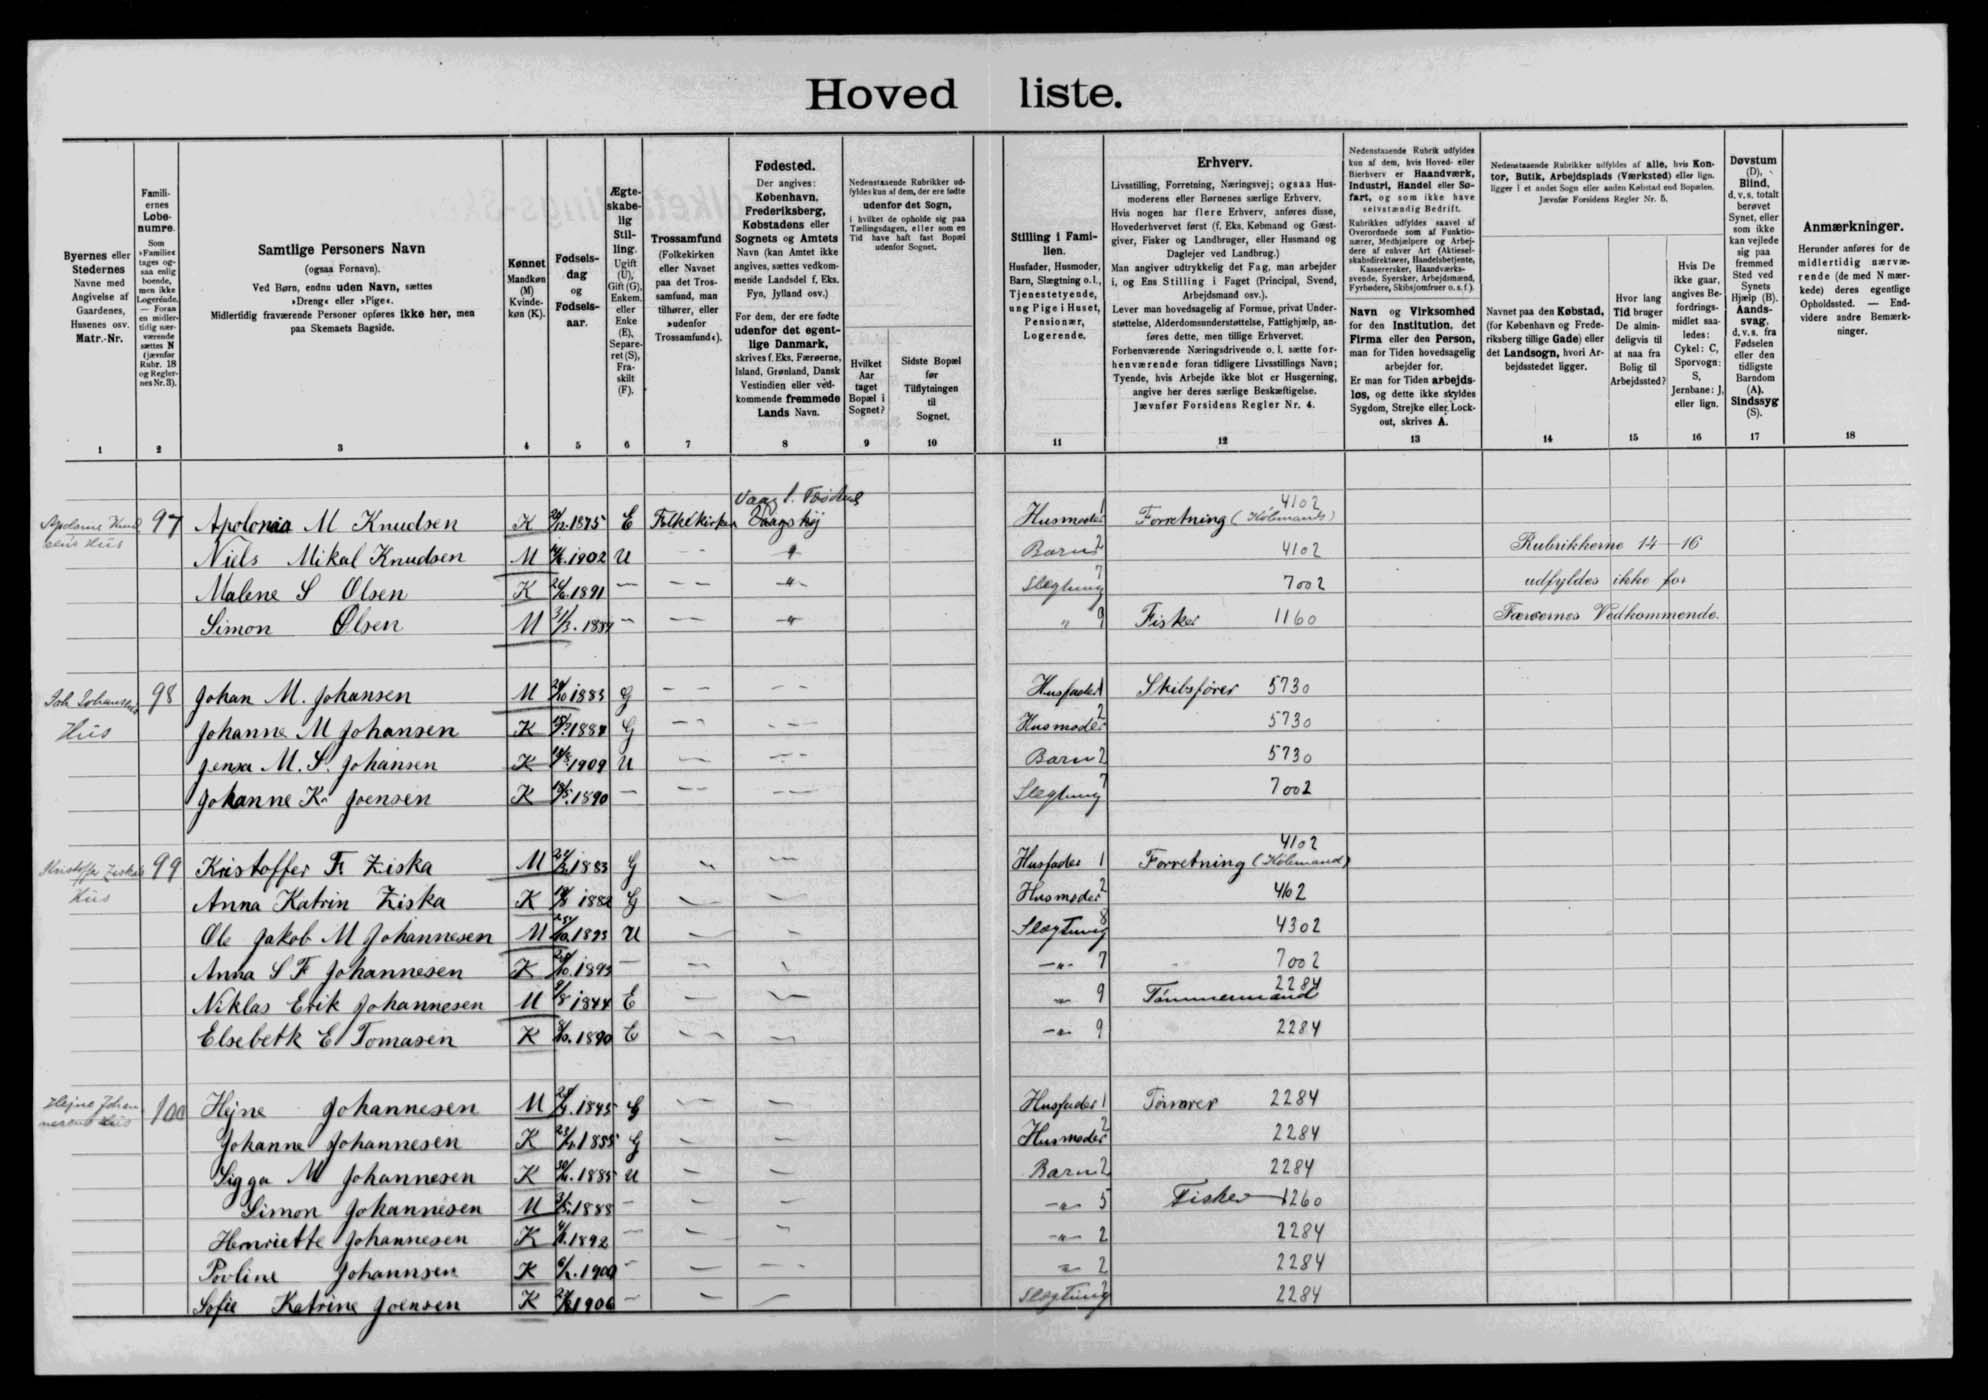 Hoved liste.
Byernes eller Stedernes Navne med Angivelse af Gaardenes, Husenes osv. Matr.-Nr.
Familiernes Løbenumre.
Som »Familie« tages ogsaa enlig boende, men ikke Logerende. — Foran en midlertidig nærværende sættes N (jævnfør Rubr. 18 og Reglernes Nr. 3).
Samtlige Personers Navn
(ogsaa Fornavn).
Ved Børn, endnu uden Navn, sættes »Dreng« eller »Pige«.
Midlertidig fraværende Personer opføres ikke her, men paa Skemaets Bagside.
Kønnet
Mandkøn (M) Kvindekøn (K).
Fødselsdag og Fødselsaar.
Ægteskabelig Stilling.
Ugift (U), Gift (G), Enkem. eller Enke (E), Separeret (S), Fraskilt (F).
Trossamfund
(Folkekirken eller Navnet paa det Trossamfund, man tilhører, eller »udenfor Trossamfund«).
Fødested.
Der angives: København, Frederiksberg, Købstadens eller Sognets og Amtets Navn (kan Amtet ikke angives, sættes vedkommende Landsdel f. Eks. Fyn, Jylland osv.)
For dem, der ere fødte udenfor det egentlige Danmark, skrives f. Eks. Færøerne, Island, Grønland, Dansk Vestindien eller vedkommende fremmede Lands Navn.
Nedenstaaende Rubrikker udfyldes kun af dem, der ere fødte udenfor det Sogn, i hvilket de opholde sig paa Tællingsdagen, eller som en Tid have haft fast Bopæl udenfor Sognet.
Hvilket Aar taget Bopæl i Sognet?
Sidste Bopæl før Tilflytningen til Sognet.
Stilling i Familien.
Husfader, Husmoder, Barn, Slægtning o.l., Tjenestetyende, ung Pige i Huset, Pensionær, Logerende.
Erhverv.
Livsstilling, Forretning, Næringsvej; ogsaa Husmoderens eller Børnenes særlige Erhverv.
Hvis nogen har flere Erhverv, anføres disse, Hovederhvervet først (f. Eks. Købmand og Gæstgiver, Fisker og Landbruger, eller Husmand og Daglejer ved Landbrug.)
Man angiver udtrykkelig det Fag, man arbejder i, og Ens Stilling i Faget (Principal, Svend, Arbejdsmand osv.).
Lever man hovedsagelig af Formue, privat Understøttelse, Alderdomsunderstøttelse, Fattighjælp, anføres dette, men tillige Erhvervet.
Forhenværende Næringsdrivende o. l. sætte forhenværende foran tidligere Livsstillings Navn; Tyende, hvis Arbejde ikke blot er Husgerning, angive her deres særlige Beskæftigelse.
Jævnfør Forsidens Regler Nr. 4.
Nedenstaaende Rubrik udfyldes kun af dem, hvis Hoved- eller Bierhverv er Haandværk, Industri, Handel eller Søfart, og som ikke have selvstændig Bedrift.
Rubrikken udfyldes saavel af Overordnede som af Funktionærer, Medhjælpere og Arbejdere af enhver Art (Aktieselskabsdirektører, Handelsbetjente, Kasserersker, Haandværkssvende, Syersker, Arbejdsmænd, Fyrbødere, Skibsjomfruer o. s. f.).
Navn og Virksomhed for den Institution, det Firma eller den Person, man for Tiden hovedsagelig arbejder for.
Er man for Tiden arbejdsløs, og dette ikke skyldes Sygdom, Strejke eller Lockout, skrives A.
Nedenstaaende Rubrikker udfyldes af alle, hvis Kontor, Butik, Arbejdsplads (Værksted) eller lign. ligger i et andet Sogn eller anden Købstad end Bopælen.
Jævnfør Forsidens Regler Nr. 5.
Navnet paa den Købstad, (for København og Frederiksberg tillige Gade) eller det Landsogn, hvori Arbejdsstedet ligger.
Hvor lang Tid bruger De almindeligvis til at naa fra Bolig til Arbejdssted?
Hvis De ikke gaar, angives Befordringsmidlet saaledes: Cykel: C, Sporvogn: S, Jernbane: J, eller lign.
Døvstum (D), Blind, d. v. s. totalt berøvet Synet, eller som ikke kan vejlede sig paa fremmed Sted ved Synets Hjælp (B). Aandssvag, d. v. s. fra Fødselen eller den tidligste Barndom (A). Sindssyg (S).
Anmærkninger.
Herunder anføres for de midlertidig nærværende (de med N mærkede) deres egentlige Opholdssted. — Endvidere andre Bemærkninger.
1 2 3 4 5 6 7 8 9 10 11 12 13 14 15 16 17 18
97 Apolonia M Knudsen K 1875 E Folkekirken Husmoder 1 Forretning (Købmands) 4102
Niels Mikal Knudsen M 1902 U Barn 2 4102
Malene S Olsen K 1891 Slegtning 7 7002
Simon Olsen M 9 Fisker 1160
Rubrikkerne 14–16
udfyldes ikke for
Færøernes Vedkommende.
Hus 98 Johan M. Johansen M 1883 G Husfader 1 Skibsfører 5730
Johanne M Johansen K G Husmoder 2 5730
Jensa M. S. Johansen K 1909 U Barn 2 5730
Johanne K. Joensen K 1890 Slegtning 7 7002
Hus 99 Kristoffer F. Ziska M 1883 G Husfader 1 Forretning (Købmand) 4102
Anna Katrin Ziska K 1882 G Husmoder 2
Ole Jakob M Johannesen M U Slægtning 8 4302
Anna S F Johannesen K 7 7002
Niklas Erik Johannesen M 1844 E 9 Tømmermand 2284
Elsebeth E Tomasen K E 9 2284
100 Hejne Johannesen M 1845 G Husfader 1 Tømrer 2284
Johanne Johannesen K G Husmoder 2 2284
Sigga M Johannesen K 1885 U Barn 2 2284
Simon Johannesen M 1888 5 Fisker 1260
Henriette Johannesen K 1892 2 2284
Povline Johannsen K 1900 2 2284
Sofie Katrine Joensen K 1906 Slegtning 2 2284